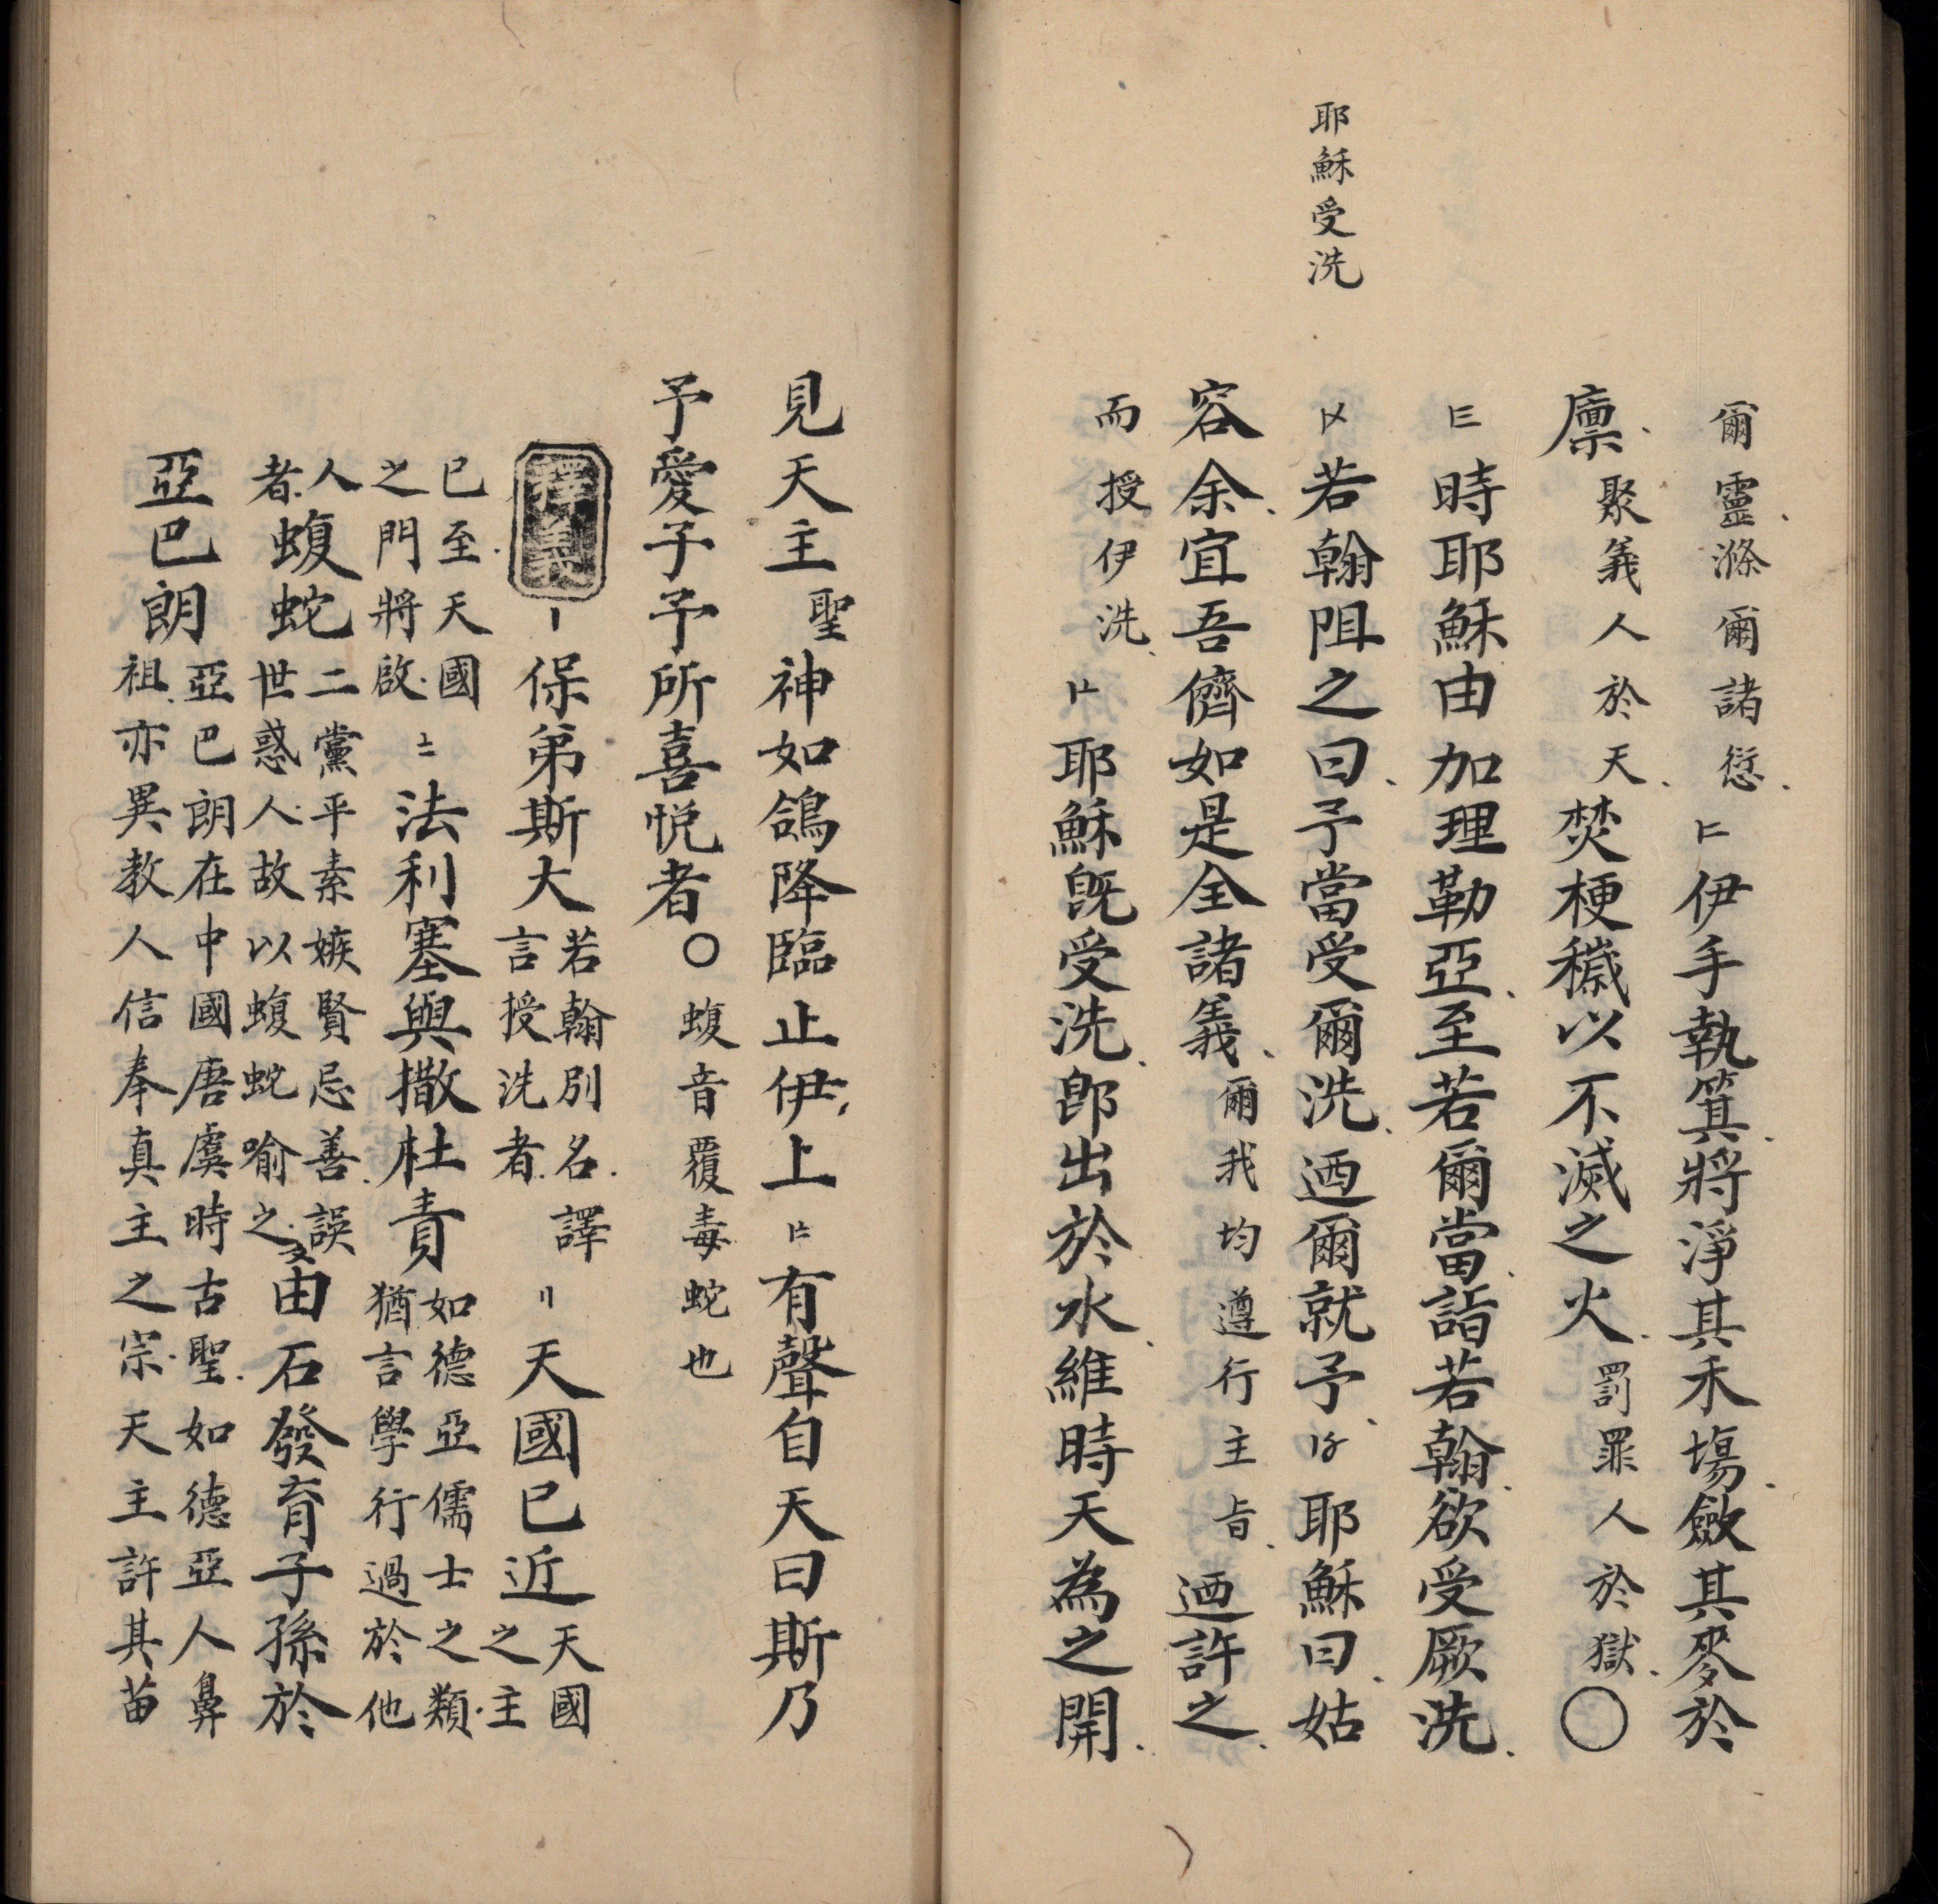 耶穌受洗
爾靈滌爾諸愆〢伊手執箕將淨其禾塲斂其麥於
廪聚義人於天焚梗穢以不滅之火罰罪人於獄〇
〣時耶穌由加理勒亞至若爾當詣若翰欲受厥洗
〤若翰阻之曰予當受爾洗迺爾就予〥耶穌曰姑
容余宜吾儕如是全諸義爾我均遵行主旨迺許之
而授伊洗〦耶穌旣受洗卽出於水維時天為之開
見天主聖神如鴿降臨止伊上〧有聲自天曰斯乃
予愛子予所喜悅者〇蝮音覆毒蛇也
釋義〡保弟斯大若翰別名譯言授洗者〢天國已近天國之主
已至天國之門將啟〧法利塞與撒杜責如德亞儒士之類猶言學行過於他
人者蝮蛇二黨平素嫉賢忌善誤世惑人故以蝮蛇喻之〩由石發育子孫於
亞巴朗亞巴朗在中國唐虞時古聖如德亞人鼻祖亦異教人信奉真主之宗天主許其苗